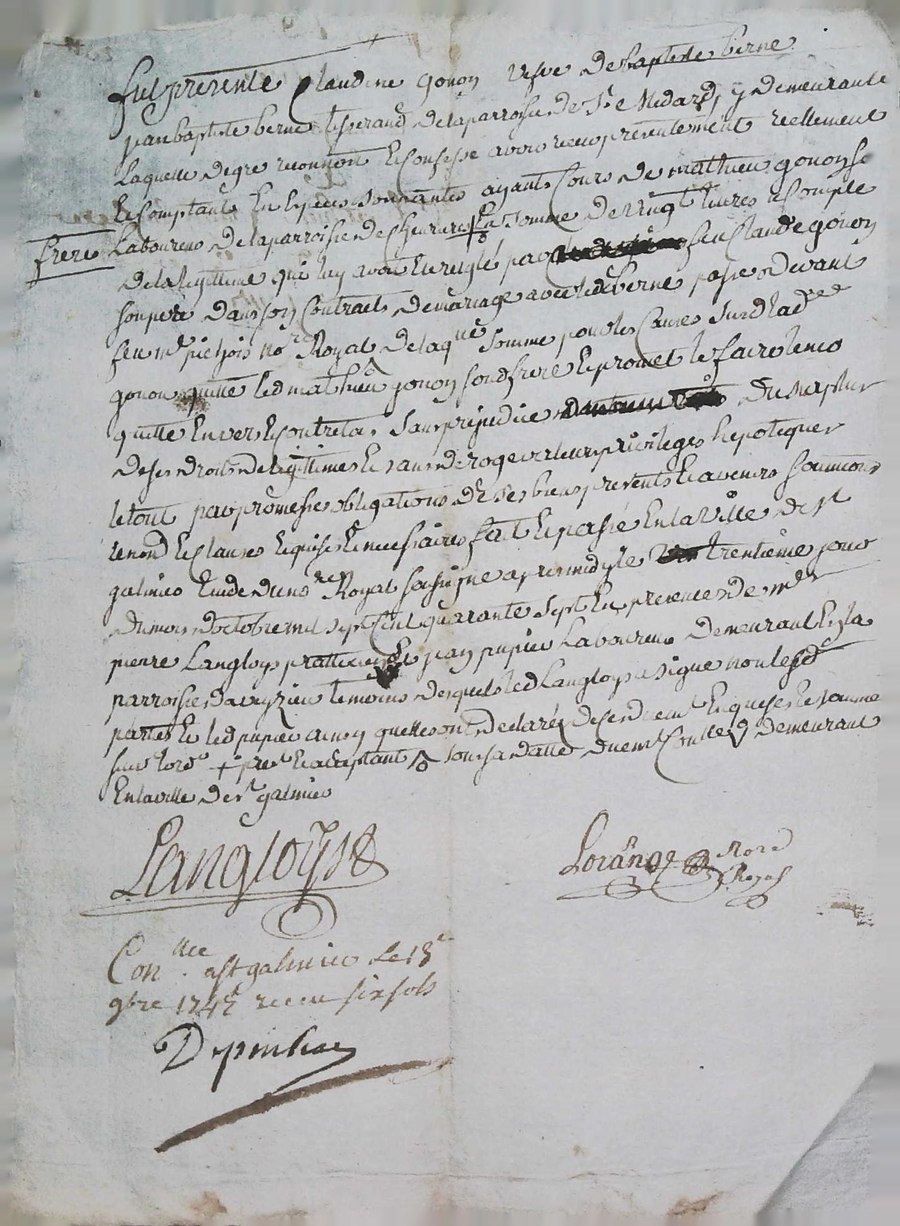 fut presente Claudine gonon vefve de baptiste berne
jean baptiste berne tisserand de la parroisse de St Medard y demeurante
laquelle de gré reconnoit et confesse avoir receu presentement reellement
et comptant en especes sonnantes ayant cours de mathieu gonon se
frere laboureur de la parroisse de chevriere + la somme de vingt livres a compte
de la legittime qui luy avoit eté reglé par feu Claude gonon
son pere dans son contract de mariage avec led berne passé devant
feu me pichois nore Royal de laqlle somme pour les causes susd lad
gonon quitte led mathieu gonon sond frere et promet le faire tenir
quitte envers et contre tous sans prejudice du surplus
de ses droits de legittimes et sans deroger a leurs privileges hepoteques
le tout par promesses obligations de ses biens presents et avenirs soumions
renons et clauses requises et necessaires fait et passé en la ville de st
galmier etude du nore Royal soussigné apres midy le trentieme jour
du mois d'octobre mil sept cent quarante sept en presence de me
pierre Langloys pratticien et jean pupier laboureur demeurant en la
parroisse d'aveyzieu temoins desquels led Langloys a signé non lesd
parties et led pupier ainsy quelles ont declaré de ce duemt enquises et sommé
suivt lordce + prest et acceptant demeurant
en la ville de st galmier
Langloys
Lorange Nore Royal
Conllee a St galmier le 13e
9bre 1747 receu six sols